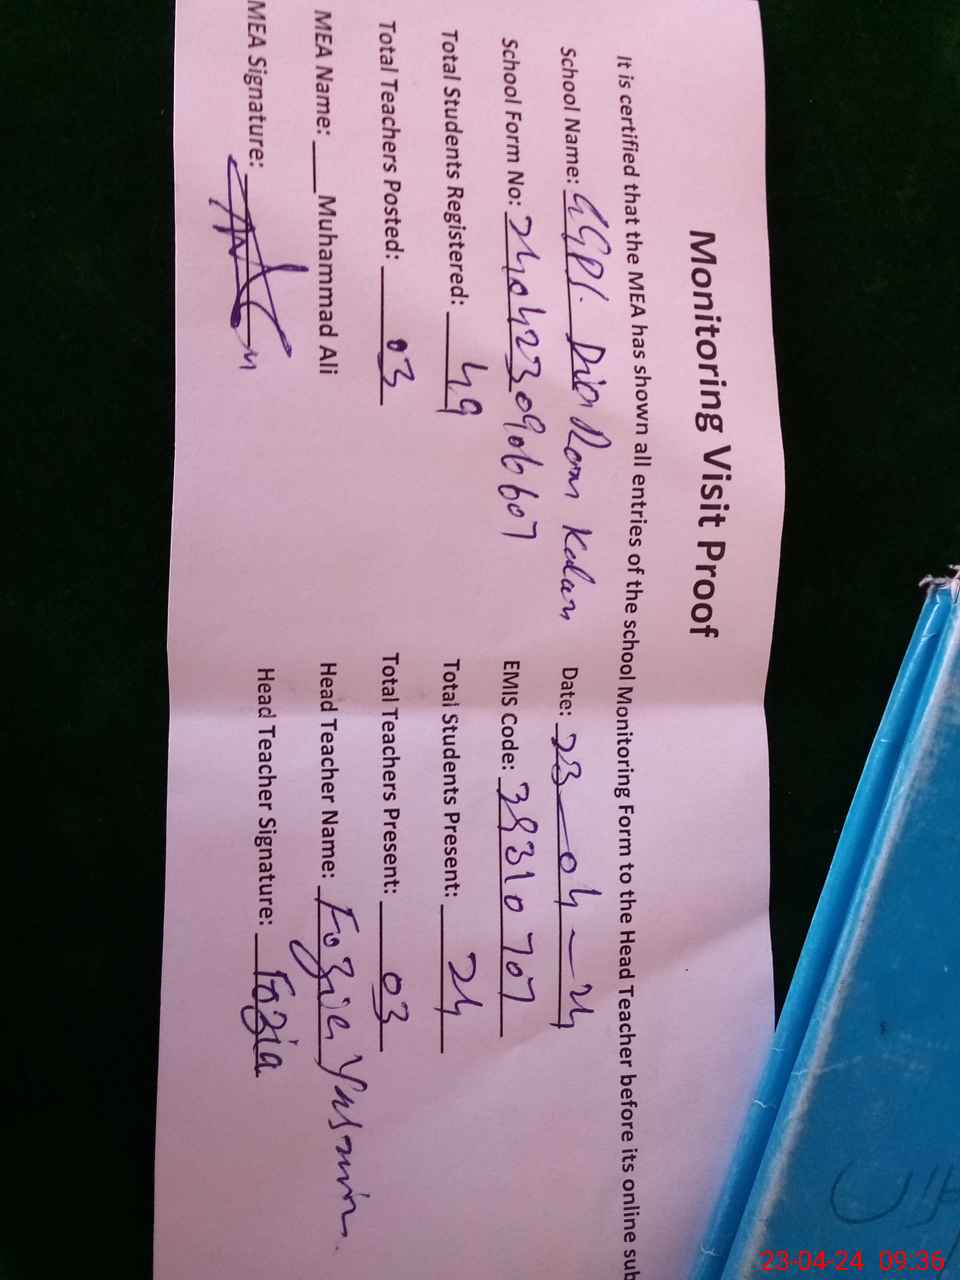 Monitoring Visit Proof
It is certified that the MEA has shown all entries of the school Monitoring Form to the Head Teacher before its online sub
School Name: GGPS. Kalan Date: 23-04-24
School Form No: EMIS Code: 38310707
Total Students Registered: 49 Total Students Present: 24
Total Teachers Posted: 03 Total Teachers Present: 03
MEA Name: Muhammad Ali Head Teacher Name: Fozia Yasmin.
MEA Signature: Head Teacher Signature: Fozia
23-04-24 09:36